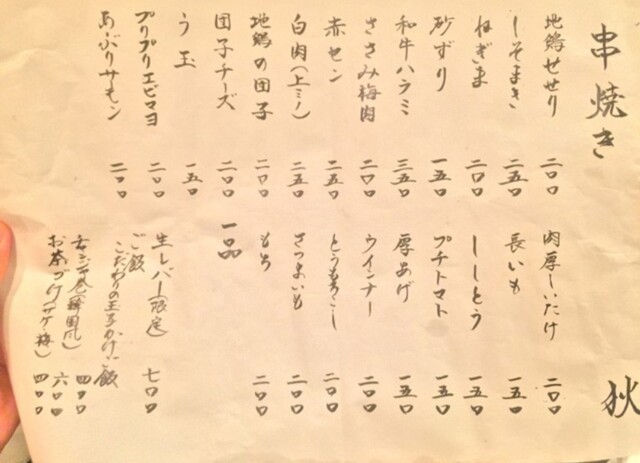 串焼き
地鶏せせり 二〇〇
しそまき 二五〇
ねぎま 二〇〇
砂ずり 一五〇
和牛ハラミ 三五〇
ささみ梅肉 二〇〇
赤セン 二五〇
白肉(上ミノ) 二五〇
地鶏の団子 二〇〇
団子チーズ 二〇〇
う玉 一五〇
プリプリエビマヨ 二〇〇
あぶりサーモン 二〇〇
秋
肉厚しいたけ 二〇〇
長いも 一五〇
ししとう 一五〇
プチトマト 一五〇
厚あげ 一五〇
ウインナー 二〇〇
とうもろこし 二〇〇
さつまいも 二〇〇
もち 二〇〇
一品
生レバー(限定) 七〇〇
ご飯
こだわりの玉子かけご飯 四〇〇
(韓国風) 六〇〇
お茶づけ(サケ、梅) 四〇〇